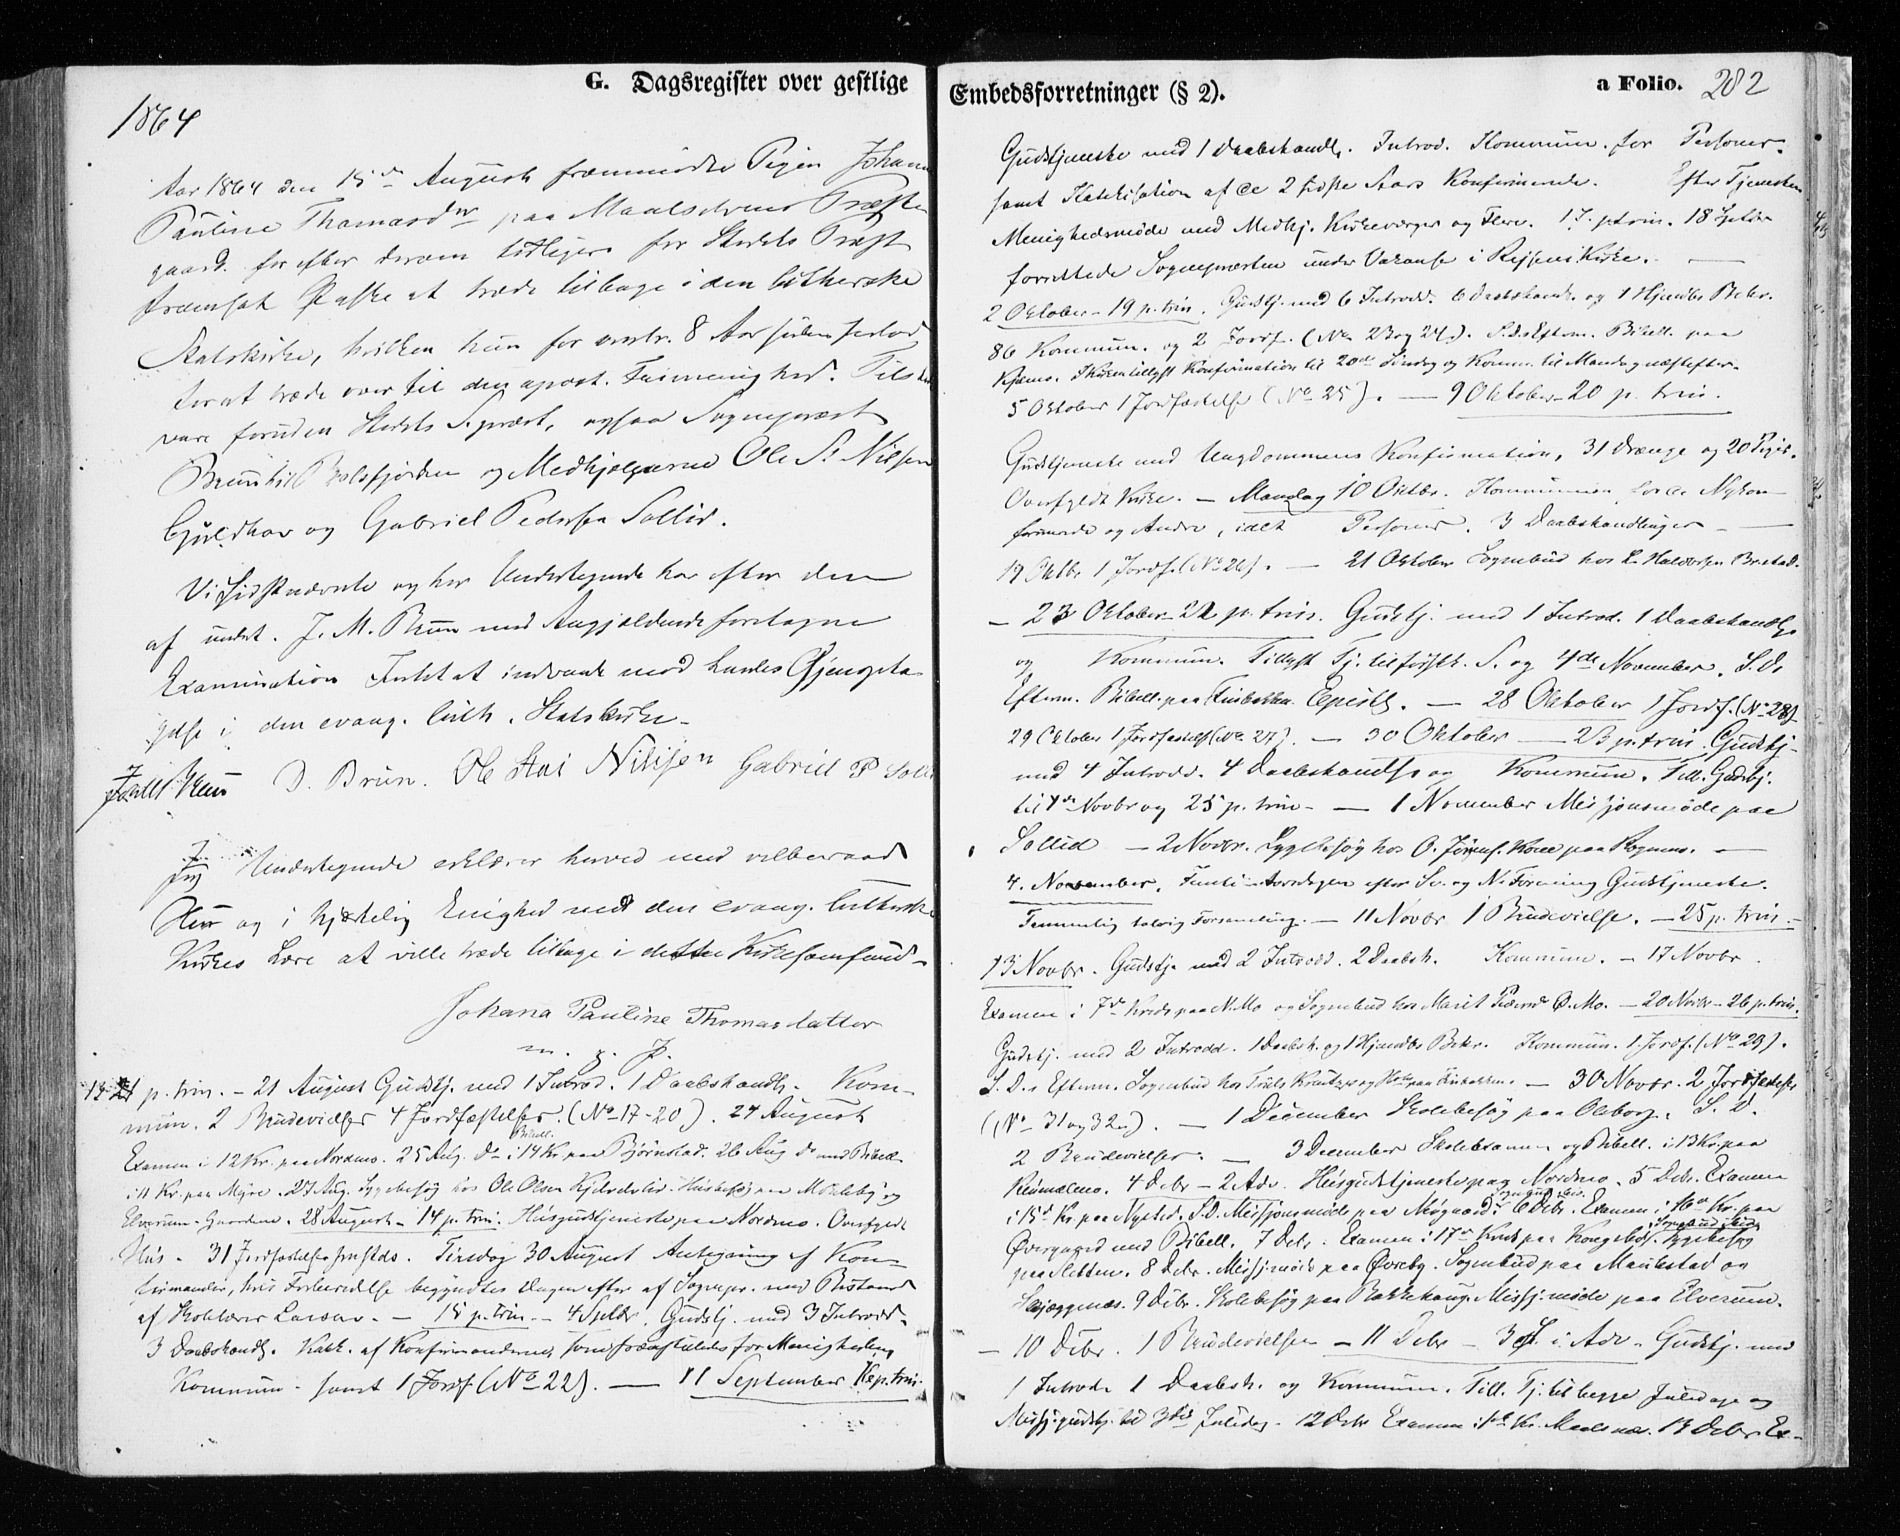 G. Dagsregister over gestlige
1864
Aar 1864 den 15de August fremmødte Pigen Johana
Pauline Thomasdtr paa Maalselvens Præste
gaard for efter derom tidligere for Stedets Præst
fremsat Ønske at træde tilbage i den lutherske
Statskirke, hvilken hun for omtr. 8 Aar siden forlod
for at træde over til den apost. Frimenighed. Tilstede
vare foruden Stedets S.præst, ogsaa Sognepræst
Brun til Balsfjorden og Medhjælperne Ole St. Nilsen
Guldhav og Gabriel Pedersen Sollid.
Vi sidstnævnte og her Undertegnede har efter den
af undert. J. M. Brun med Angjældende foretagne
Examination Intet at indvende mod hendes Gjenopta
gelse i den evang. luth. Statskirke.
D. Brun. Ole Stai Nilsen Gabriel P Solli
Jeg Undertegnede erklærer herved med velberaad
Hu og i hjertelig Enighed med den evang. lutherske
Kirkes Lære at ville træde tilbage i dette Kirkesamfund.
Johana Pauline Thomasdatter
m. p. P.
p. trin. - 21 August Gudstj. med 1 Introd. 1 Daabshandl. Kom-
mun. 2 Brudevielser 4 Jordfæstelser. (No 17-20). 24 August
Examen i 12 Kr. paa Nordmo. 25 Aug. Do i 14 Kr paa Bjørnstad. 26 Aug Do med Bibell.
i 11 Kr. paa Myre. 27 Aug. Sygebesøg hos Ole Olsen Husbesøg paa og
Elverum-Gaardene. 28 August - 14 p. trin. Husgudstjeneste paa Nordmo. Overfyldt
Hus. 31 Jordfæstelse Tirsdag 30 August Antegning af Kon-
firmander, hvis Forberedelse begyndtes Dagen efter af Sognepr. med Bistand
af Skolelærer Larsen. - 15 p. trin. - 4 Septbr. Gudstj. med 3 Introd.
3 Daabshandl. Katk. af Konfirmanderne, som fremstilledes for Menigheden,
Kommun. samt 1 Jordf. (No 22). — 11 September 16 p. trin.
Embedsforretninger (§ 2).
a Folio. 282
Gudstjeneste med 1 Daabshandl. Introd. Kommun. for Personer.
samt Katekisation af de 2 sidste Aars Konfirmerede. Efter Tjenesten
Menighedsmøde med Medhj. Kirkeværger og Flere. 17 p. trin. 18 Septbr
forrettede Sognepræsten under Vakanse i Kirke. —
2 Oktober - 19 p. trin. Gudstj. med 6 Introdd. 6 Daabshandl. og 1 Hjemdbs Bekr.
86 Kommun. og 2 Jordf. (No 23 og 24). S.D. Eftm. Bibell. paa
Kjærmo. Konfirmation til 20de Søndag og Komm. til Mandag næstefter.
5 Oktober 1 Jordfæstelse (No 25). — 9 Oktober - 20 p. trin.
Gudstjeneste med Ungdommens Konfirmation, 31 Drenge og 20 Piger.
Overfyldt Kirke. — Mandag 10 Oktbr. Kommunion for de Nykon-
firmerede og Andre, idet Personer. 3 Daabshandlinger —
19 Oktbr 1 Jordf. (No 26). — 21 Oktober Sognebud hos L. Halvorsen
— 23 Oktober - 22 p. trin. Gudstj. med 1 Introd. 1 Daabshandlg
og Kommun. Tillyst Tj. til S. og 4de November. S. D.
Eftm. Bibell. paa Finbakken — 28 Oktober 1 Jordf. (No 28)
29 Oktober 1 Jordfæstelse (No 27). — 30 Oktober — 23 p. trin. Gudstj.
med 4 Introdd. 4 Daabshandl. og Kommun. Till. Gudstj.
til 4de Novbr og 25 p. trin. — 1 November Misjonsmøde paa
Sollid — 2 Novbr. Sygebesøg hos O. Kone paa —
4. November. efter Sv. og N. Forening Gudstjeneste.
Temmelig talrig Forsamling. — 11 Novbr 1 Brudevielse. — 25 p. trin. -
13 Novbr. Gudstj. med 2 Introdd. 2 Daabsh. Kommun. — 17 Novbr
Examen i 7de Kreds paa N. Mo og Sognebud hos Marit Ø. Mo. — 20 Novbr - 26 p. trin.
Gudstj. med 2 Introdd. 1 Daabsh. og 1 Hjemdbs Bekr. Kommun. 1 Jordf. (No 29).
S. D. Eftm. Sognebud hos — 30 Novbr. 2 Jordfæstelser
(No 31 og 32). — 1 December Skolebesøg paa Oleborg. S. D.
2 Brudevielser. — 3 December Skoleexamen og Bibell. i 13 Kr. paa
4 Debr - 2 Adv. Husgudstjeneste paa Nordmo. 5 Debr. Examen
i 15de Kr. paa Nysted. S.D. Missjonsmøde paa Moegaard. 6 Debr. Examen i 16de Kr. paa
Øvergaard med Bibell. 7 Debr. Examen i 17de Kreds paa Kongslid. Sygebesøg
paa Sletten. 8 Debr. Missj.møde paa Øvreby. Sognebud paa Maukstad og
Skjæggenæs. 9 Debr. Skolebesøg paa Bakkehaug. Missj.møde paa Elverum.
— 10 Debr. 1 Brudevielse — 11 Debr — 3 S. i Adv. Gudstj. med
1 Introd. 1 Daabsh. og Kommun. Till. Tj. til begge Juledage og
Missj.gudstj. til 3die Juledag. 12 Debr Examen i Kr. 13 Debr. Ex-